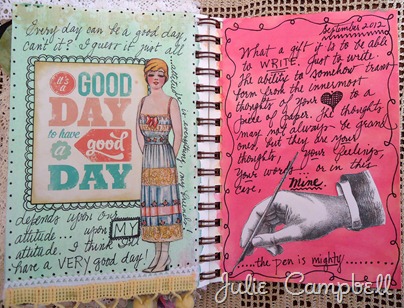 Every day can be a good day,
can't it? I guess it just all
it's a
GOOD
DAY
to have
a good
DAY
depends upon
attitude... upon MY
attitude. I think I'll
have a VERY good day!
September 2012
What a gift it is to be able
to WRITE. Just to write.
The ability to somehow trans-
form from the innermost
thoughts of your to a
piece of paper. The thoughts
may not always be grand
ones, but they are your
thoughts, your feelings,
your words... or in this
case, Mine.
....the pen is mighty.......
Julie Campbell